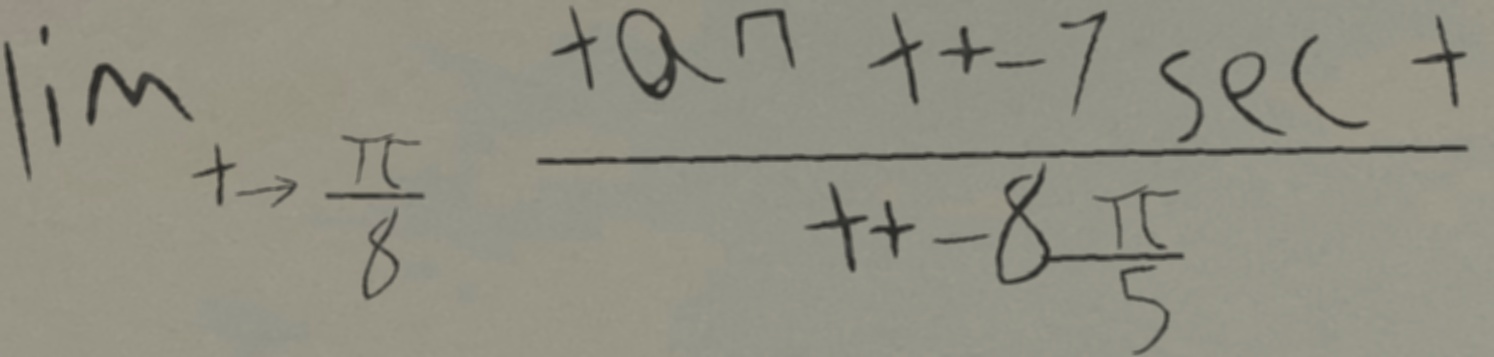 \lim_{t \to \frac{\pi}{8}} \frac{\tan t + -7 \sec t}{t + -8 \frac{\pi}{5}}